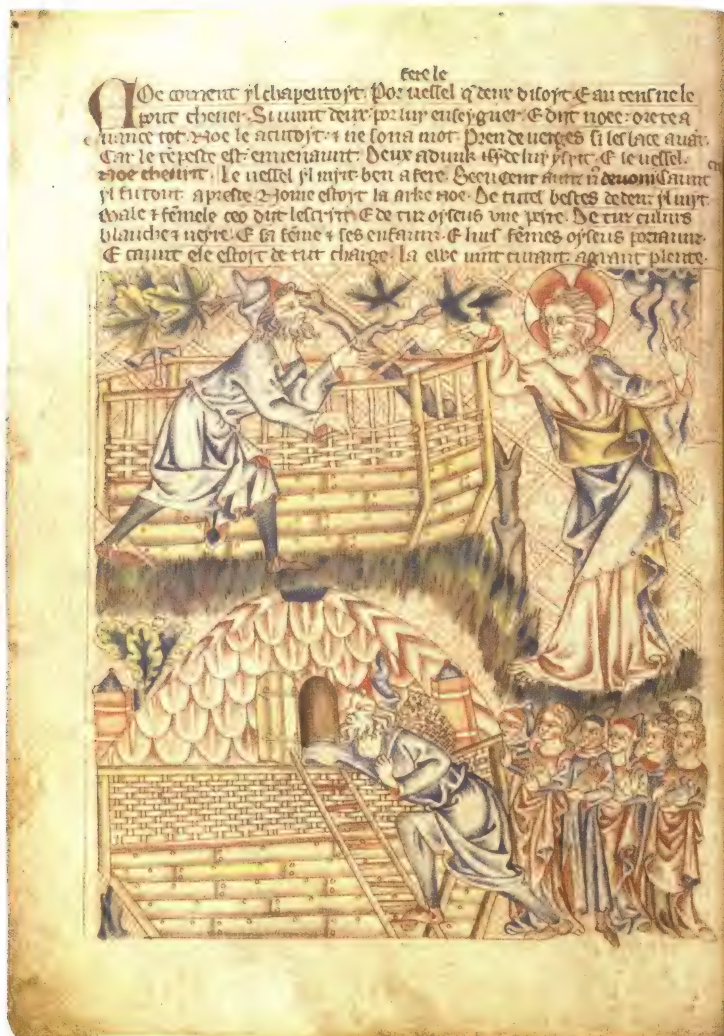 fere le
Noe coment yl chapentoyt. Por uessel q̄ deux disoyt. E au tens ne le
pout cheuer. Si uint deux por luy enseygner. E dist noee: orete a
uance tot. Noe le acutoyt. ⁊ ne sona mot. Pren de uerges si les lace auāt.
Car le tēpeste est enuenaunt. Deux adunk de luy. E le uessel.
noe cheuist. Le uessel yl myst ben a fere. cent aunz
yl fu tout apreste. Nome estoyt la arke noe. De tutel bestes dedenz yl myst
Male ⁊ fēmele ceo dist lescryt. E de tuz oyseus une peyre. De tuz culurs
blauche ⁊ neyre. E sa fēme ⁊ ses enfaunz. E lius fēmes oyseus portaunz.
E caunt ele estoyt de tut charge. La ewe uint a grant plente.